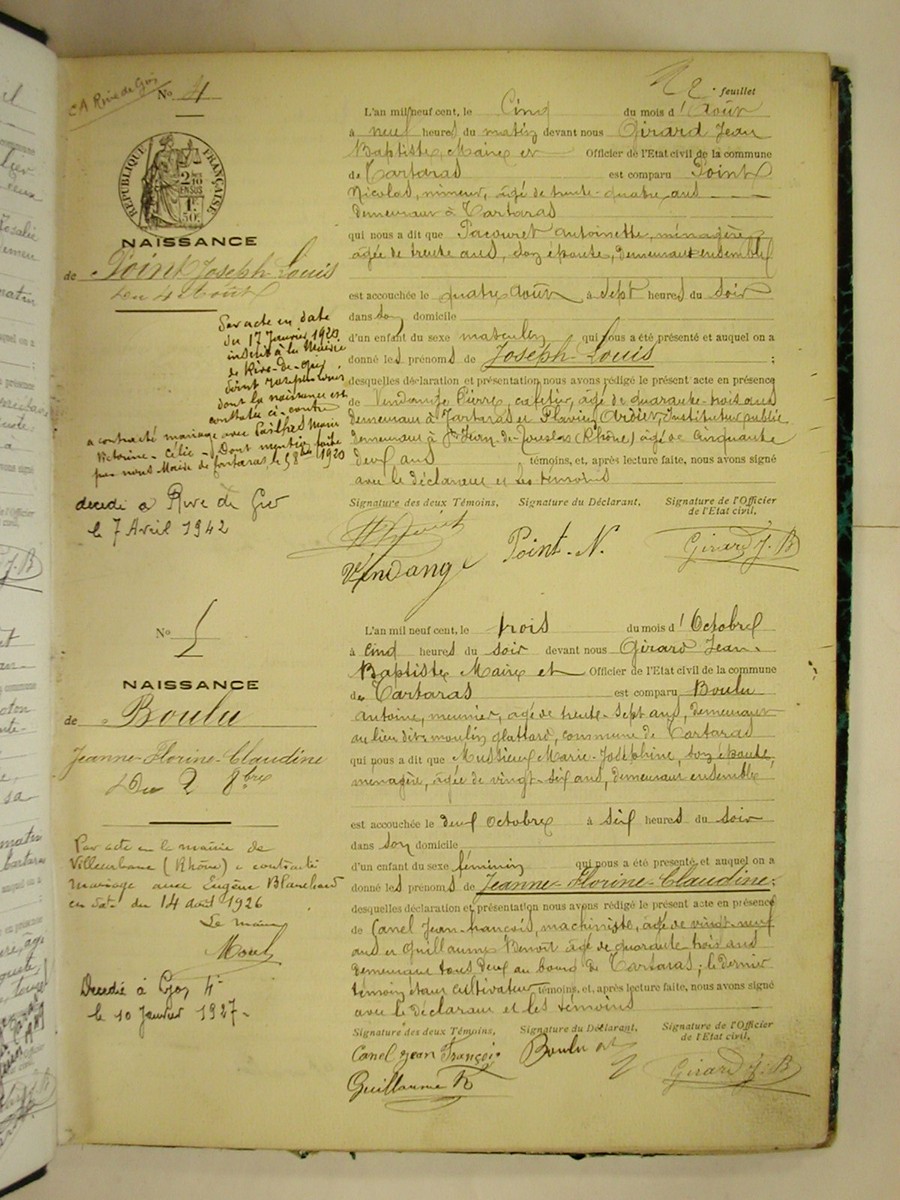 N° 4
RÉPUBLIQUE FRANÇAISE
NAISSANCE
de Point Joseph Louis
du 4 Août
Par acte en date
du 17 Janvier 1920
inscrit à la Mairie
de Rive-de-Gier
Point Joseph Louis
dont la naissance est
constatée ci-contre
a contracté mariage avec
Victorine - Célie - Dont mention faite
par nous Maire de Tartaras le 1920
décédé à Rive de Gier
le 7 Avril 1942
2 e. feuillet
L'an mil neuf cent, le Cinq du mois d'Août
à neuf heures du matin devant nous Girard Jean
Baptiste, Maire et Officier de l'Etat civil de la commune
de Tartaras est comparu Point
Nicolas, mineur, âgé de trente-quatre ans
demeurant à Tartaras
qui nous a dit que Pacouret Antoinette, ménagère
âgée de trente ans, son épouse, demeurant ensemble
est accouchée le quatre août à sept heures du soir
dans son domicile
d'un enfant du sexe masculin qui nous a été présenté et auquel on a
donné les prénoms de Joseph-Louis ;
desquelles déclaration et présentation nous avons rédigé le présent acte en présence
de Vendange Pierre, cafetier, âgé de quarante-trois ans
demeurant à Tartaras et Flavien Ardier, Instituteur public
demeurant à St Jean-de-Touslas (Rhône) âgé de cinquante
deux ans témoins, et, après lecture faite, nous avons signé
avec le déclarant et les témoins
Signature des deux Témoins, Signature du Déclarant, Signature de l'Officier
de l'Etat civil,
Vendange Point. N. Girard J. B
N° 5
NAISSANCE
de Boulu
Jeanne-Florine-Claudine
Du 2 8bre
Par acte en la mairie de
Villeurbanne (Rhône) a contracté
mariage avec Eugène Blanchard
en date du 14 août 1926
Le maire
Décédée à Lyon 4e
le 10 Janvier 1927.
L'an mil neuf cent, le trois du mois d'Octobre
à cinq heures du soir devant nous Girard Jean-
Baptiste Maire et Officier de l'Etat civil de la commune
de Tartaras est comparu Boulu
Antoine, meunier, âgé de trente-sept ans, demeurant
au lieu dit moulin glattard, commune de Tartaras
qui nous a dit que Mussieux Marie-Joséphine, son épouse,
ménagère, âgée de vingt-six ans, demeurant ensemble
est accouchée le deux Octobre à six heures du soir
dans son domicile
d'un enfant du sexe féminin qui nous a été présenté et auquel on a
donné les prénoms de Jeanne-Florine-Claudine ;
desquelles déclaration et présentation nous avons rédigé le présent acte en présence
de Canel Jean-François, machiniste, âgé de vingt-neuf
ans et Guillaume Benoit âgé de quarante trois ans
demeurant tous deux au bourg de Tartaras ; le dernier
témoin étant cultivateur témoins, et, après lecture faite, nous avons signé
avec le déclarant et les témoins
Signature des deux Témoins, Signature du Déclarant, Signature de l'Officier
de l'Etat civil,
Canel Jean François Boulu ant
Guillaume Girard J. B